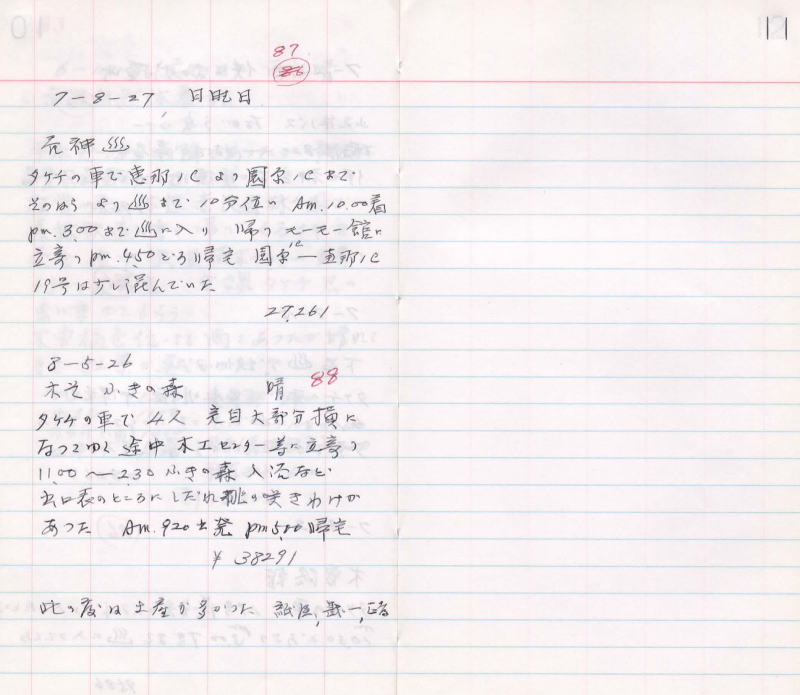 87
7-8-27 日曜日
荒神♨
タケチの車で恵那ICより園原ICまで
そのはらより♨まで10分位い Am.10.00着
pm.3.00まで♨に入り帰り モーモー館に
立寄りpm.4.50ごろ帰宅 園原IC—恵那IC
19号は少し混んでいた
27,261
8-5-26
88
木そ ふきの森 晴
タケチの車で4人 完目大部分損に
なってゆく途中木工センター等に立寄り
11.00〜2.30 ふきの森入浴など
出口表のところにしだれ桃の咲きわけが
あった Am.9.20出発 pm5.00帰宅
¥38291
此の度は土産が多かった